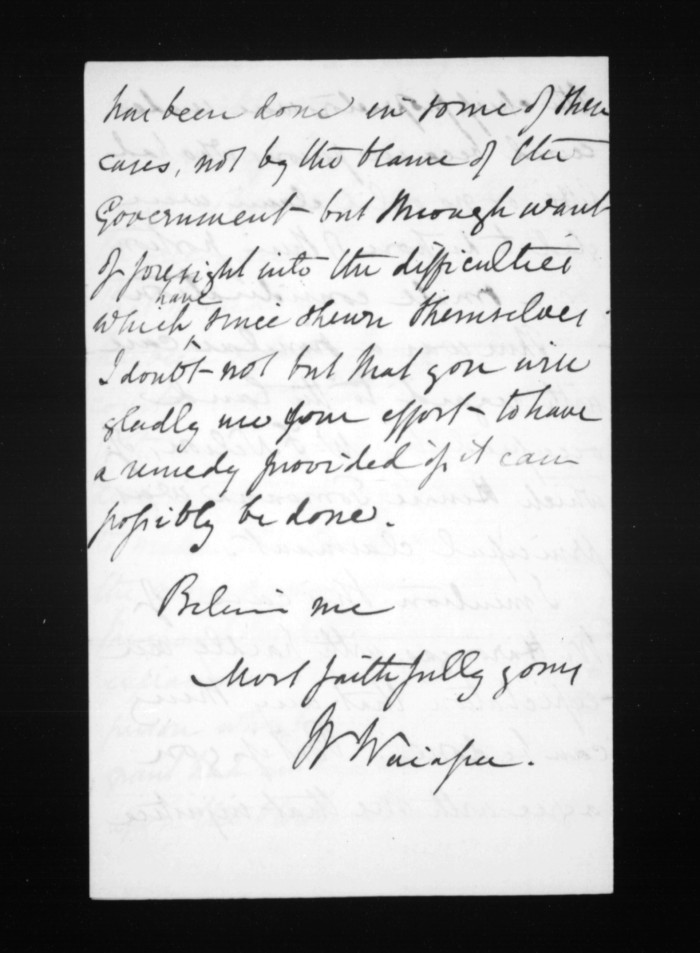 has been done in some of these
cases, not by the blame of the
Government - but through want
of foresight into the difficulties
which have since shewn themselves.
I doubt not but that you will
gladly use your effort to have
a remedy provided if it can
possibly be done.
Believe me
Most faithfully yours
W Waiapu.